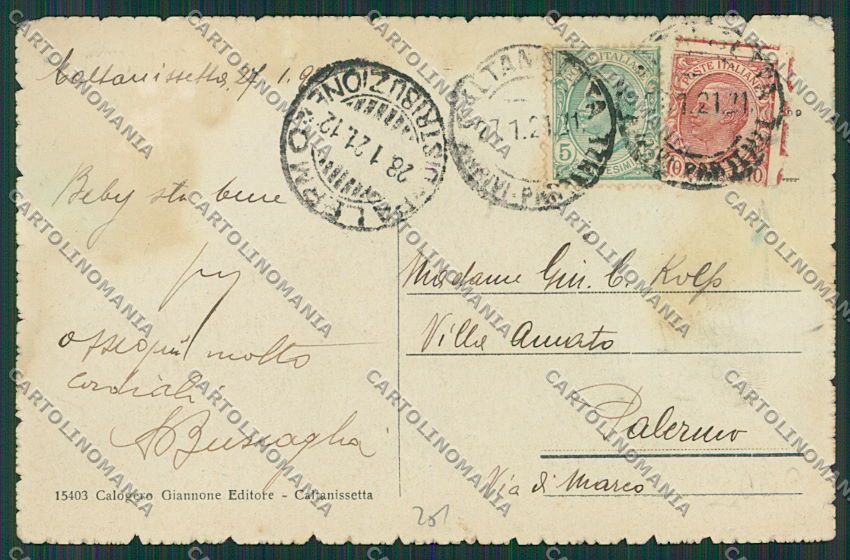 Caltanissetta, 27 1. 9
Beby sta bene
ossequi molto
cordiali
Bussaglia
15403 Calogero Giannone Editore - Caltanissetta
PALERMO DISTRIBUZIONE
28 1 21. 12
CALTANI
27.1.21.21
POSTE ITALIANE
5
CENTESIMI
1.21.21
POSTE ITALIANE
10
Madame Giu. C. Kolps
Villa Amato
Palermo
Via di Marco
201
CARTOLINOMANIA